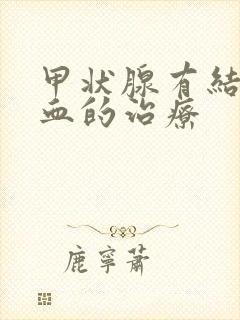 甲状腺有結
血的治療
鹿寧蕭